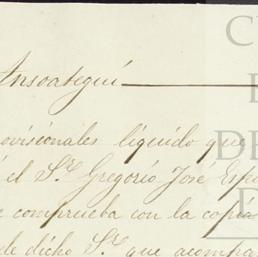 Ansoategui
ovisionales liquido que
el Sr. Gregorio José Espi
e comprueba con la copia
de dicho Sr. que acompa